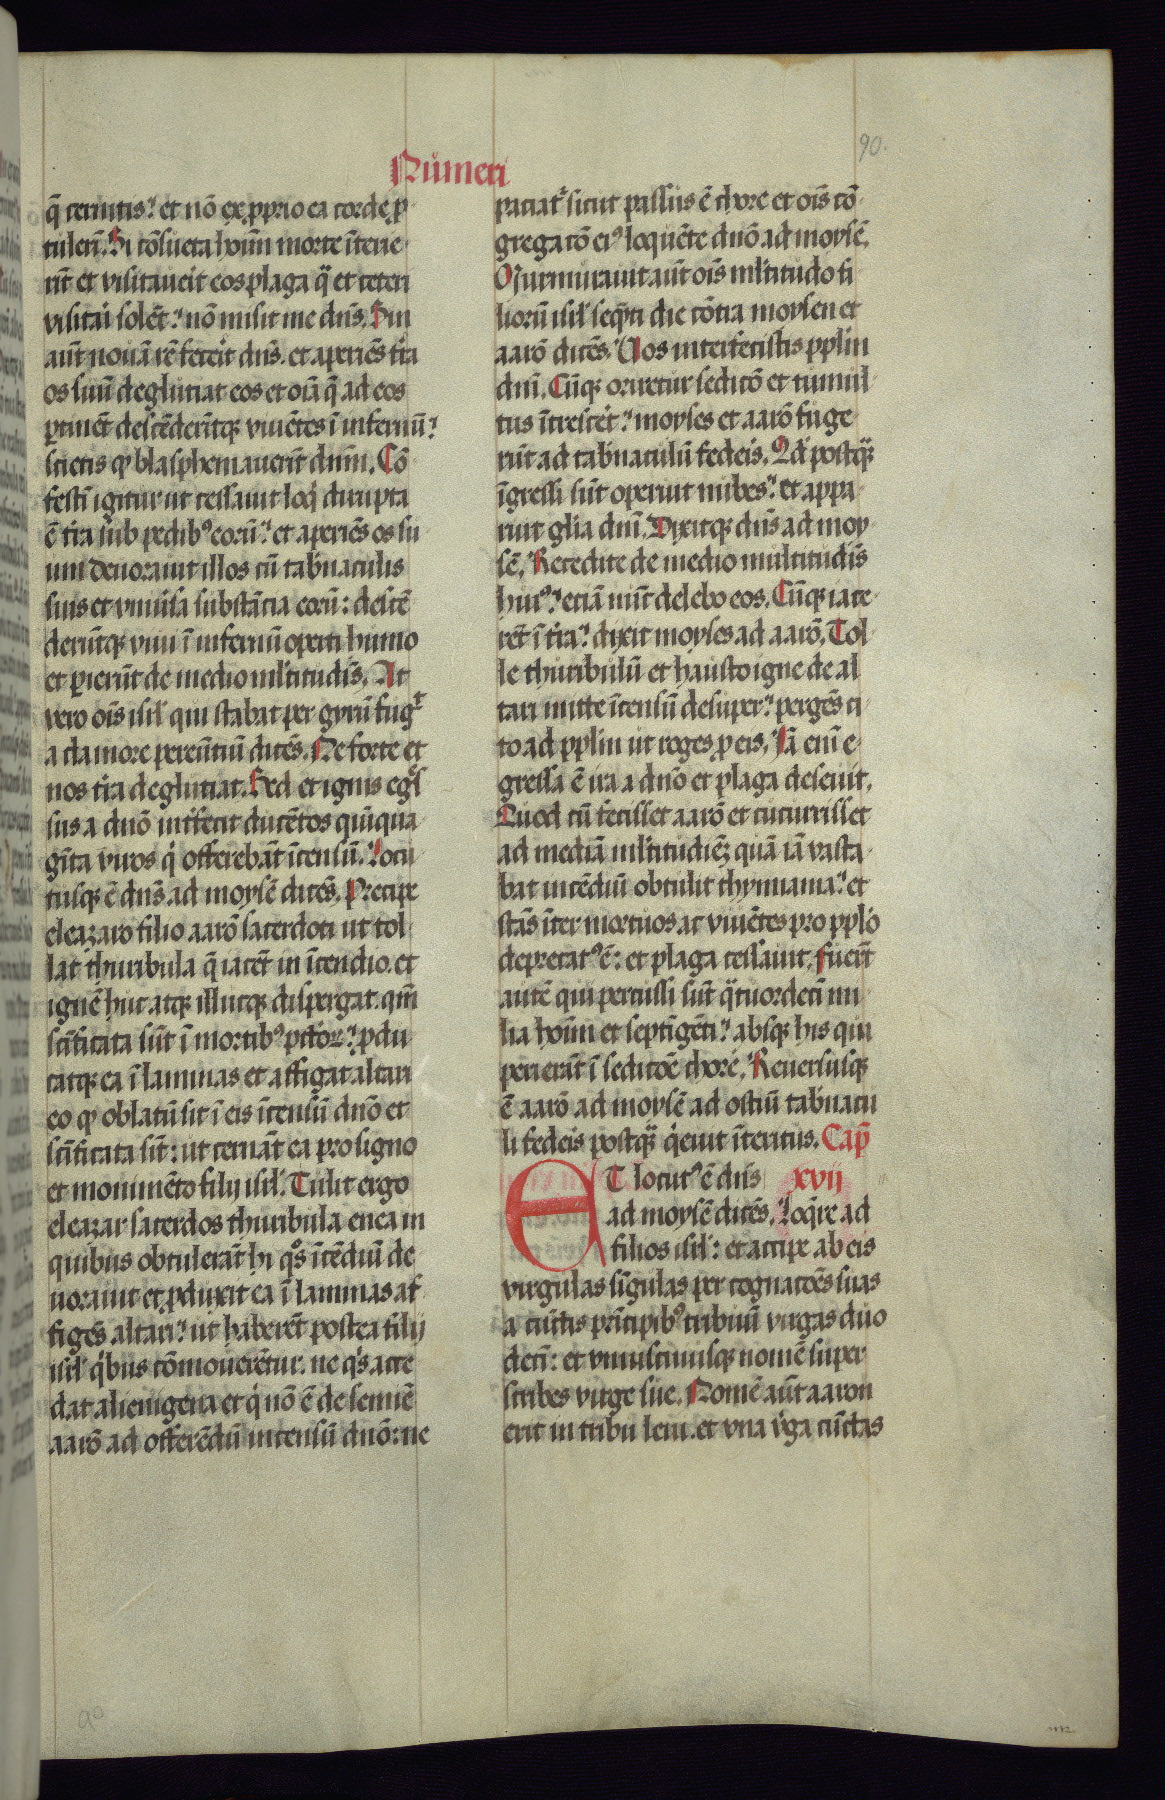 90.
Numeri
q̄ cernitis? et nō ex p̱prio ea corde p̱
tulerī. Si cōsueta hoīm morte īterie
rīt et visitaverit eos plaga q̈ et ceteri
visitari solēt? nō misit me dn̄s. Sin
aūt nouā rē fecerit dn̄s. et aperiēs t̄ra
os suū deglutiat eos et oīa q̄ ad eos
ꝑtinēt descēderītqꝫ viuētes ī infernū?
scietis qꝫ blasphemauerīt dnm̄. Cō
festī igitur ut cessauit loqi dirupta
ē t̄ra sub pedibꝰ eorū? et aperiēs os su
um deuorauit illos cū tabn̄aculis
suis et vniu̓sa substātia eorū: descē
derūtqꝫ viui ī infernū operti humo
et ꝑierūt de medio ml̄titudīs. At
vero oīs isrl̄ qui stabat per gyrū fugͥt
a clamore pereūtiū dicēs. Ne forte et
nos t̄ra deglutiat. Sed et ignis egͥs
sus a dnō int̓fecit ducētos quīqua
gīta viros qͥ offerebāt īcensū. Locu
tusqꝫ ē dn̄s ad moysē dicēs. Precipe
eleazaro filio aarō sacerdoti ut tol
lat thuribula q̄ iacēt in īcendio. et
ignē huc atqꝫ illucqꝫ dispergat. qm̄
scīficata sūt ī mortibꝰ pctōꝝ? p̱du
catqꝫ ea ī laminas et affigat altari
eo qꝫ oblatū sit ī eis īcensū dnō et
scīficata sīt: ut cernāt ea pro signo
et monimēto filij isrl̄. Tulit ergo
eleazar sacerdos thuribula enea in
quibus obtulerāt hi qͦs īcēdiū de
uorauit et p̱duxit ea ī laminas af
figēs altari? ut haberēt postea filij
isrl̄ qͥbus cōmouerētur. ne qͥs acce
dat alienigena et qͥ nō ē de semīe
aarō ad offerēdū incensū dnō: ne
paciatͬ sicut passus ē chore et oīs cō
gregatō eiꝰ loquēte dnō ad moysē.
Murmurauit aūt oīs ml̄titudo fi
liorū isrl̄ seqn̄ti die cōtra moysen et
aarō dicēs. Vos interfecistis pplm̄
dnī. Cūqꝫ oriretur seditō et tumul
tus īcresceret? moyses et aarō fuge
rūt ad tabn̄aculū federis. Qd̄ postqͣꝫ
īgressi sūt operuit nubes? et appa
ruit glīa dnī. Dixitqꝫ dn̄s ad moy
sē. Recedite de medio multitudīs
huiꝰ? etiā nūc delebo eos. Cūqꝫ iace
rēt ī t̄ra? dixit moyses ad aarō. Tol
le thuribulū et hausto igne de al
tari mitte īcensū desuper? pergēs ci
to ad pplm̄ ut roges p̱ eis. Iā enī e
gressa ē ira a dnō et plaga deseuit.
Quod cū fecisset aarō et cucurrisset
ad mediā ml̄titudiēꝫ quā iā vasta
bat incēdiū obtulit thymiama? et
stās īter mortuos ac viuētes pro pplō
deprecatꝰ ē: et plaga cessauit. Fuerūt
autē qui percussi sūt qͣtuordecī mi
lia hoīm et septīgēti? absqꝫ his qui
perierāt ī seditōe chore. Reuersusqꝫ
ē aarō ad moysē ad ostiū tabn̄acu
li federis postqͣꝫ qͥeuit īteritus. Cap̄
ET locutꝰ ē dn̄s xvij
ad moysē dicēs. Loq̄re ad
filios isrl̄: et accipe ab eis
virgulas sīgulas per cognacōes suas
a cūctis prīcipibꝰ tribuū virgas duo
decī: et vniuscuiusqꝫ nomē super
scribes virge sue. Nomē aūt aaron
erit in tribu leui. et vna v̓ga cūctas